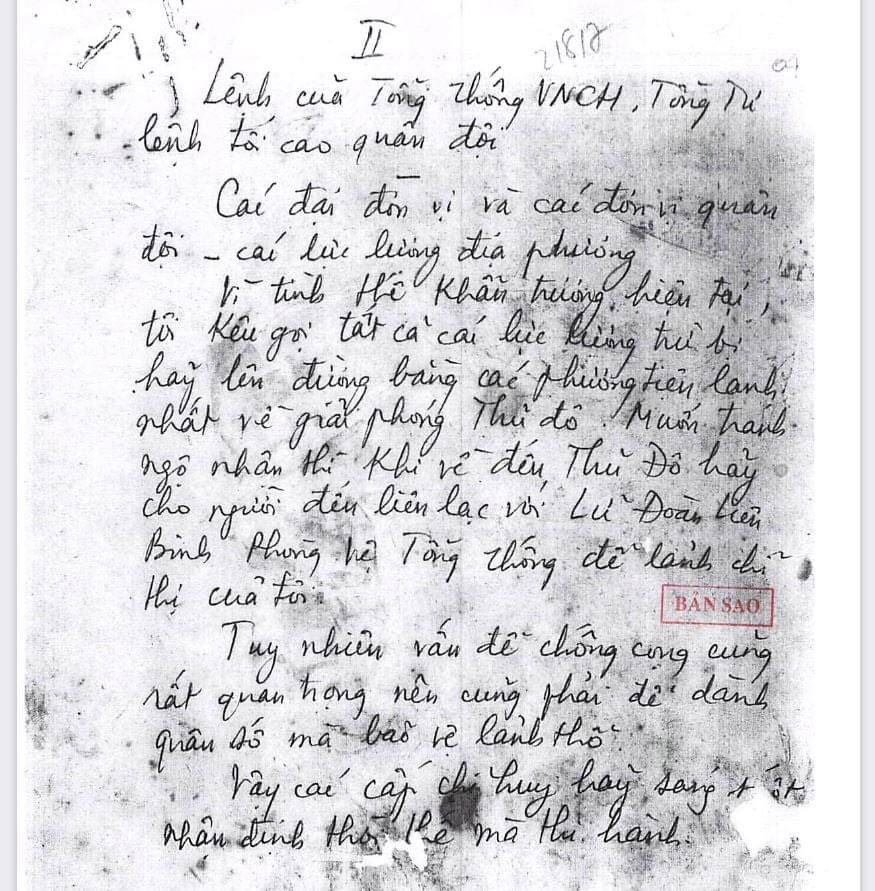 II
21812
Lệnh của Tổng thống VNCH, Tổng Tư
lệnh tối cao quân đội
Các đại đơn vị và các đơn vị quân
đội – các lực lượng địa phương
Vì tình thế khẩn trương hiện tại,
tôi kêu gọi tất cả các lực lượng trừ bị
hãy lên đường bằng các phương tiện lanh
nhất về giải phóng Thủ đô. Muốn tránh
ngộ nhận thì khi về đến Thủ Đô hãy
cho người đến liên lạc với Lữ Đoàn Liên
Binh Phòng vệ Tổng thống để lảnh chỉ
thị của tôi.
BẢN SAO
Tuy nhiên vấn đề chống cộng cũng
rất quan trọng nên cũng phải để dành
quân số mà bảo vệ lảnh thổ.
Vậy các cấp chỉ huy hãy sáng suốt
nhận định thời thế mà thi hành.